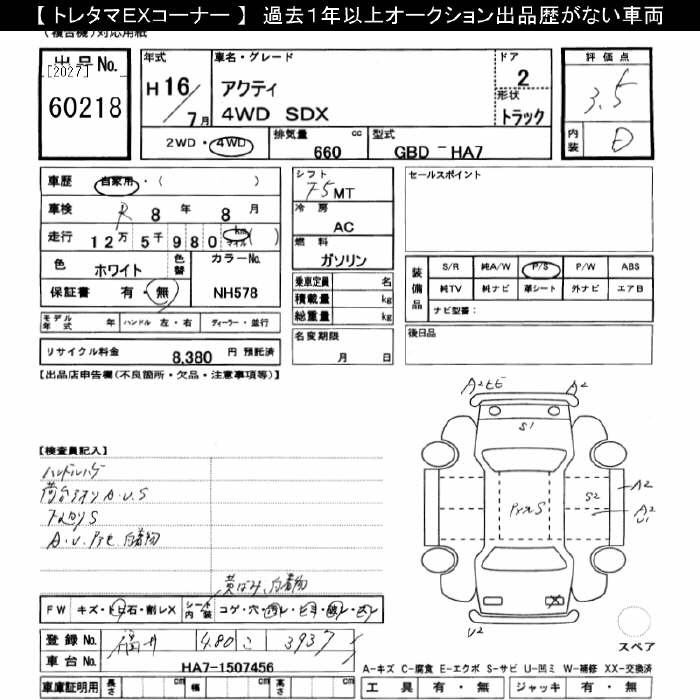 【 トレタマEXコーナー 】 過去1年以上オークション出品歴がない車両
(複合機)対応用紙
出品No.
[2027]
60218
年式
H16/7月
車名・グレード
アクティ
4WD SDX
ドア
2
形状
トラック
評価点
3.5
内装
D
2WD・4WD
排気量
660 cc
型式
GBD - HA7
車歴 自家用・( )
車検 R 8 年 8 月
走行 12万 5千 9 8 0 km マイル ( )
色 ホワイト
色替
カラーNo.
NH578
保証書 有・無
シフト
F5MT
冷房
AC
燃料
ガソリン
乗車定員 名
積載量 kg
総重量 kg
名変期限
月 日
セールスポイント
装備品
S/R 純A/W P/S P/W ABS
純TV 純ナビ 革シート 外ナビ エアB
ナビ型番:
後日品
モデル年式 年 ハンドル 左・右 ディーラー・並行
リサイクル料金 8,380 円 預託済
【出品店申告欄(不良箇所・欠品・注意事項等)】
【検査員記入】
ハンドルハゲ
荷台 A.U.S
S
A.U. 付着物
黄ばみ 付着物
A2 A2
S1
S2
A2
A2
U1
U2
FW キズ・トビ石・削レX
シート内装 コゲ・穴
登録No. 福井 480 こ 3937
車台No. HA7-1507456
車庫証明用 長さ cm 幅 cm 高さ cm
スペア
A-キズ C-腐食 E-エクボ S-サビ U-凹ミ W-補修 XX-交換済
工具 有・無 ジャッキ 有・無